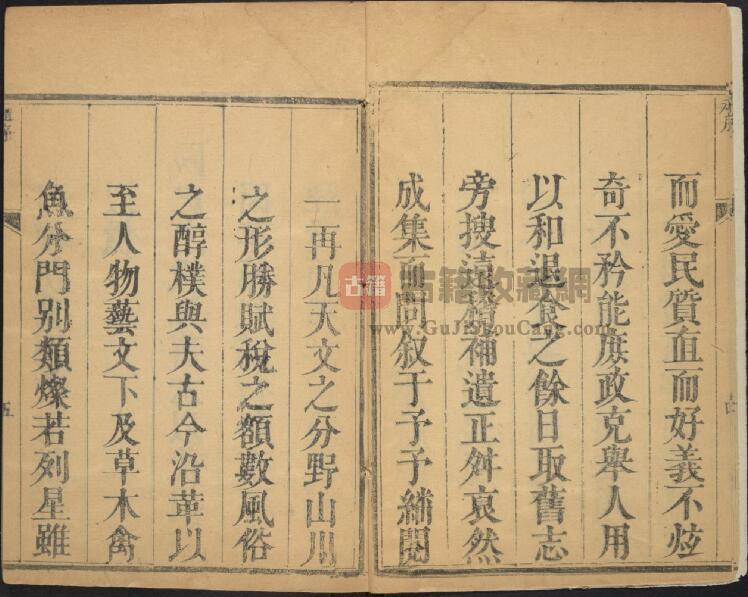 而愛民質直而好義不炫
奇不矜能庶政克舉人用
以和退食之餘日取舊志
旁搜遠稽補遺正舛裒然
成集而問叙于予予繙閱
一再凡天文之分野山川
之形勝賦稅之額數風俗
之醇樸與夫古今沿革以
至人物藝文下及草木禽
魚分門別類燦若列星雖
五
古籍
古籍收藏網
www.GuJiShouCang.com